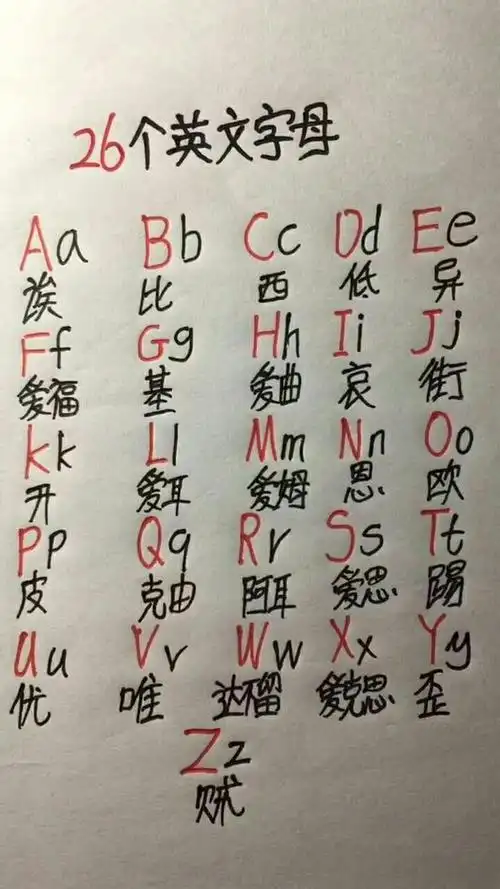 26个英文字母
Aa Bb Cc Dd Ee
诶 比 西 低 异
Ff Gg Hh Ii Jj
爱福 基 爱曲 哀 街
Kk Ll Mm Nn Oo
开 爱耳 爱姆 恩 欧
Pp Qq Rr Ss Tt
皮 克由 阿耳 爱思 踢
Uu Vv Ww Xx Yy
优 唯 达不留 爱克思 歪
Zz
贼